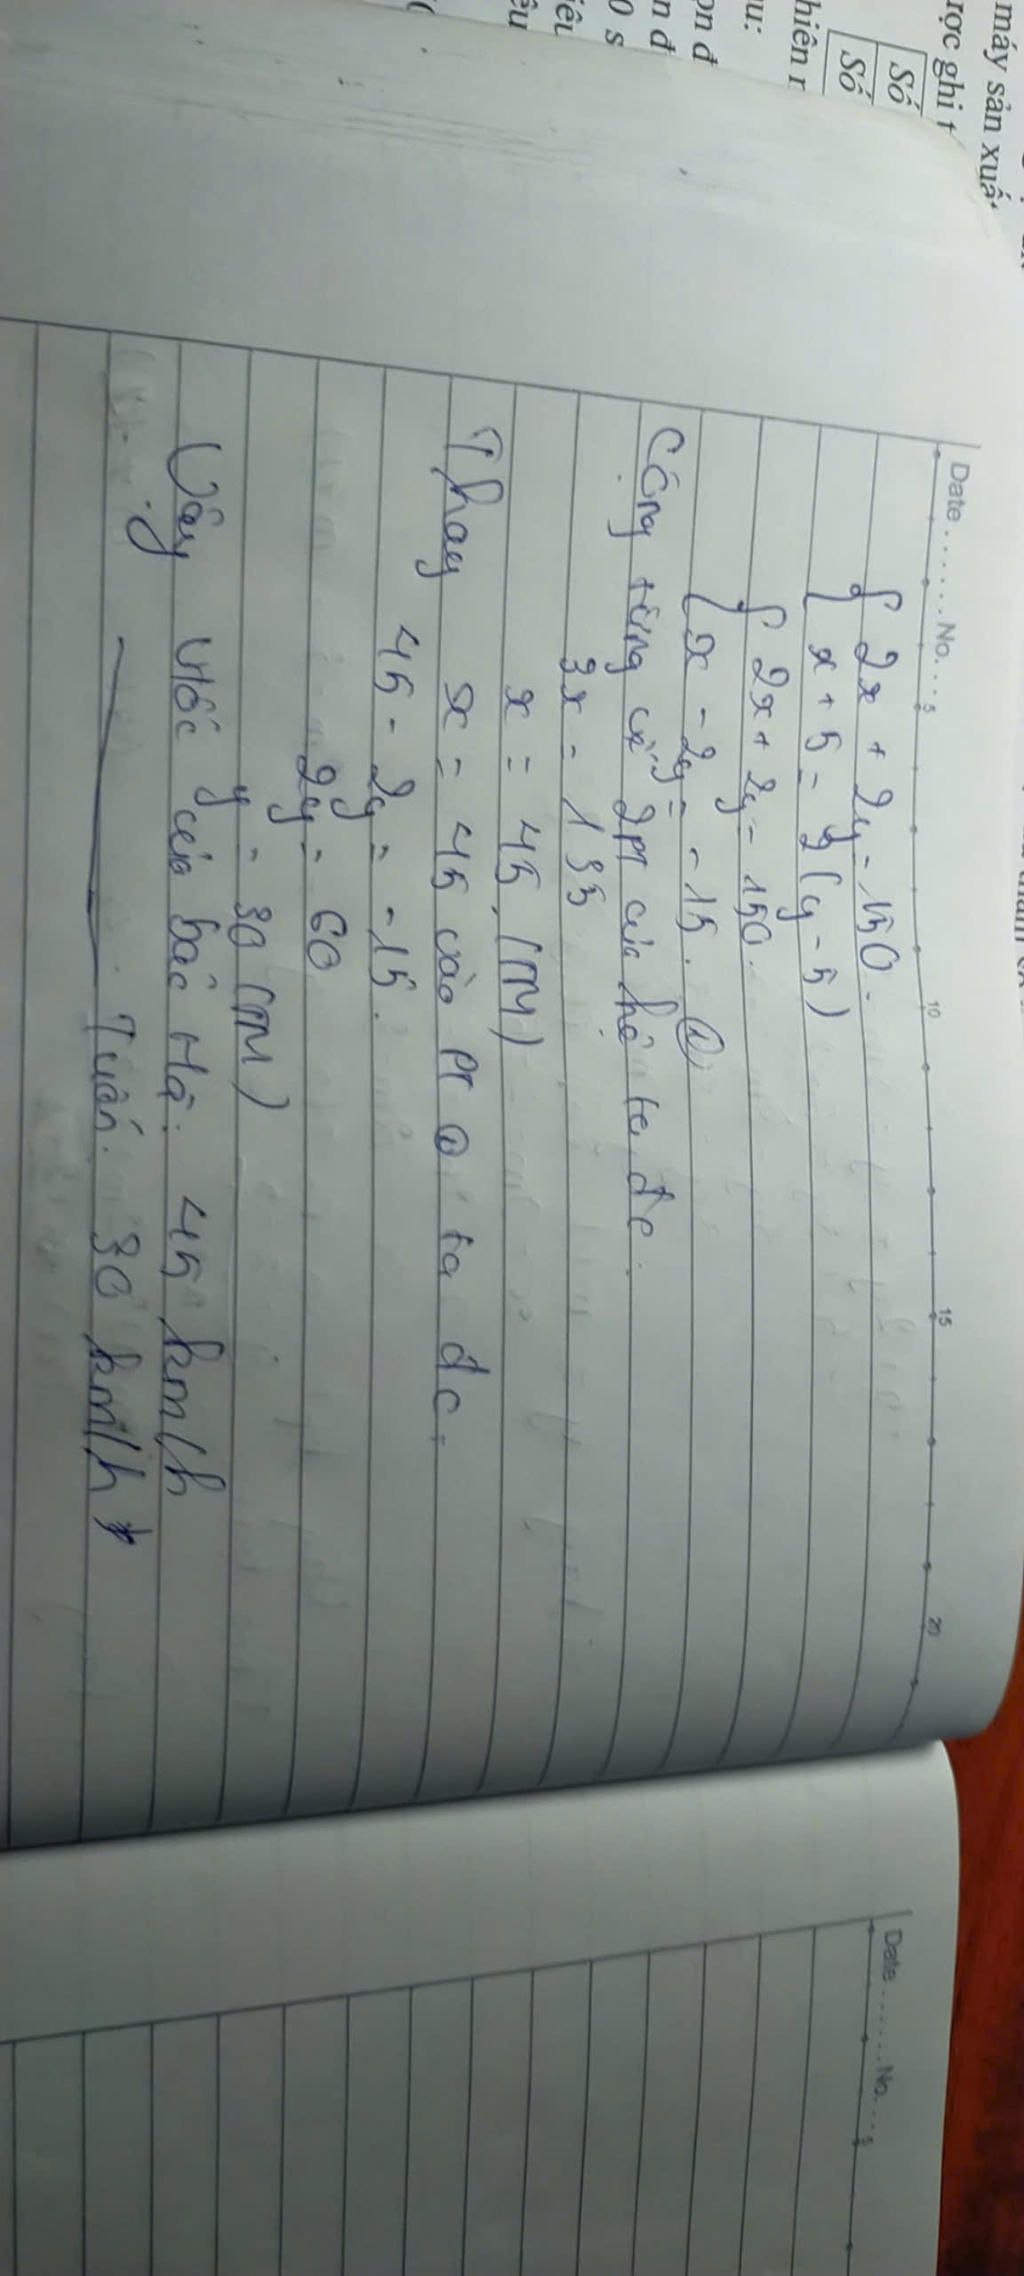 máy sản xuất
ược ghi t
Số
Số
hiên r
u:
ọn đ
n đ
0 s
iêu
êu
Date ....... No. ... 5 10 15 20
{ 2x + 2y = 150.
x + 5 = 2(y - 5)
{ 2x + 2y = 150.
x - 2y = -15. ①
Cộng từng vế 2PT của hệ ta đc.
3x = 135
x = 45 (TM)
Thay x = 45 vào PT ① ta đc.
45 - 2y = -15.
2y = 60
y = 30 (TM)
Vậy vtốc của bác Hà. 45 km/h
Tuấn. 30 km/h
Date ....... No. ... 5